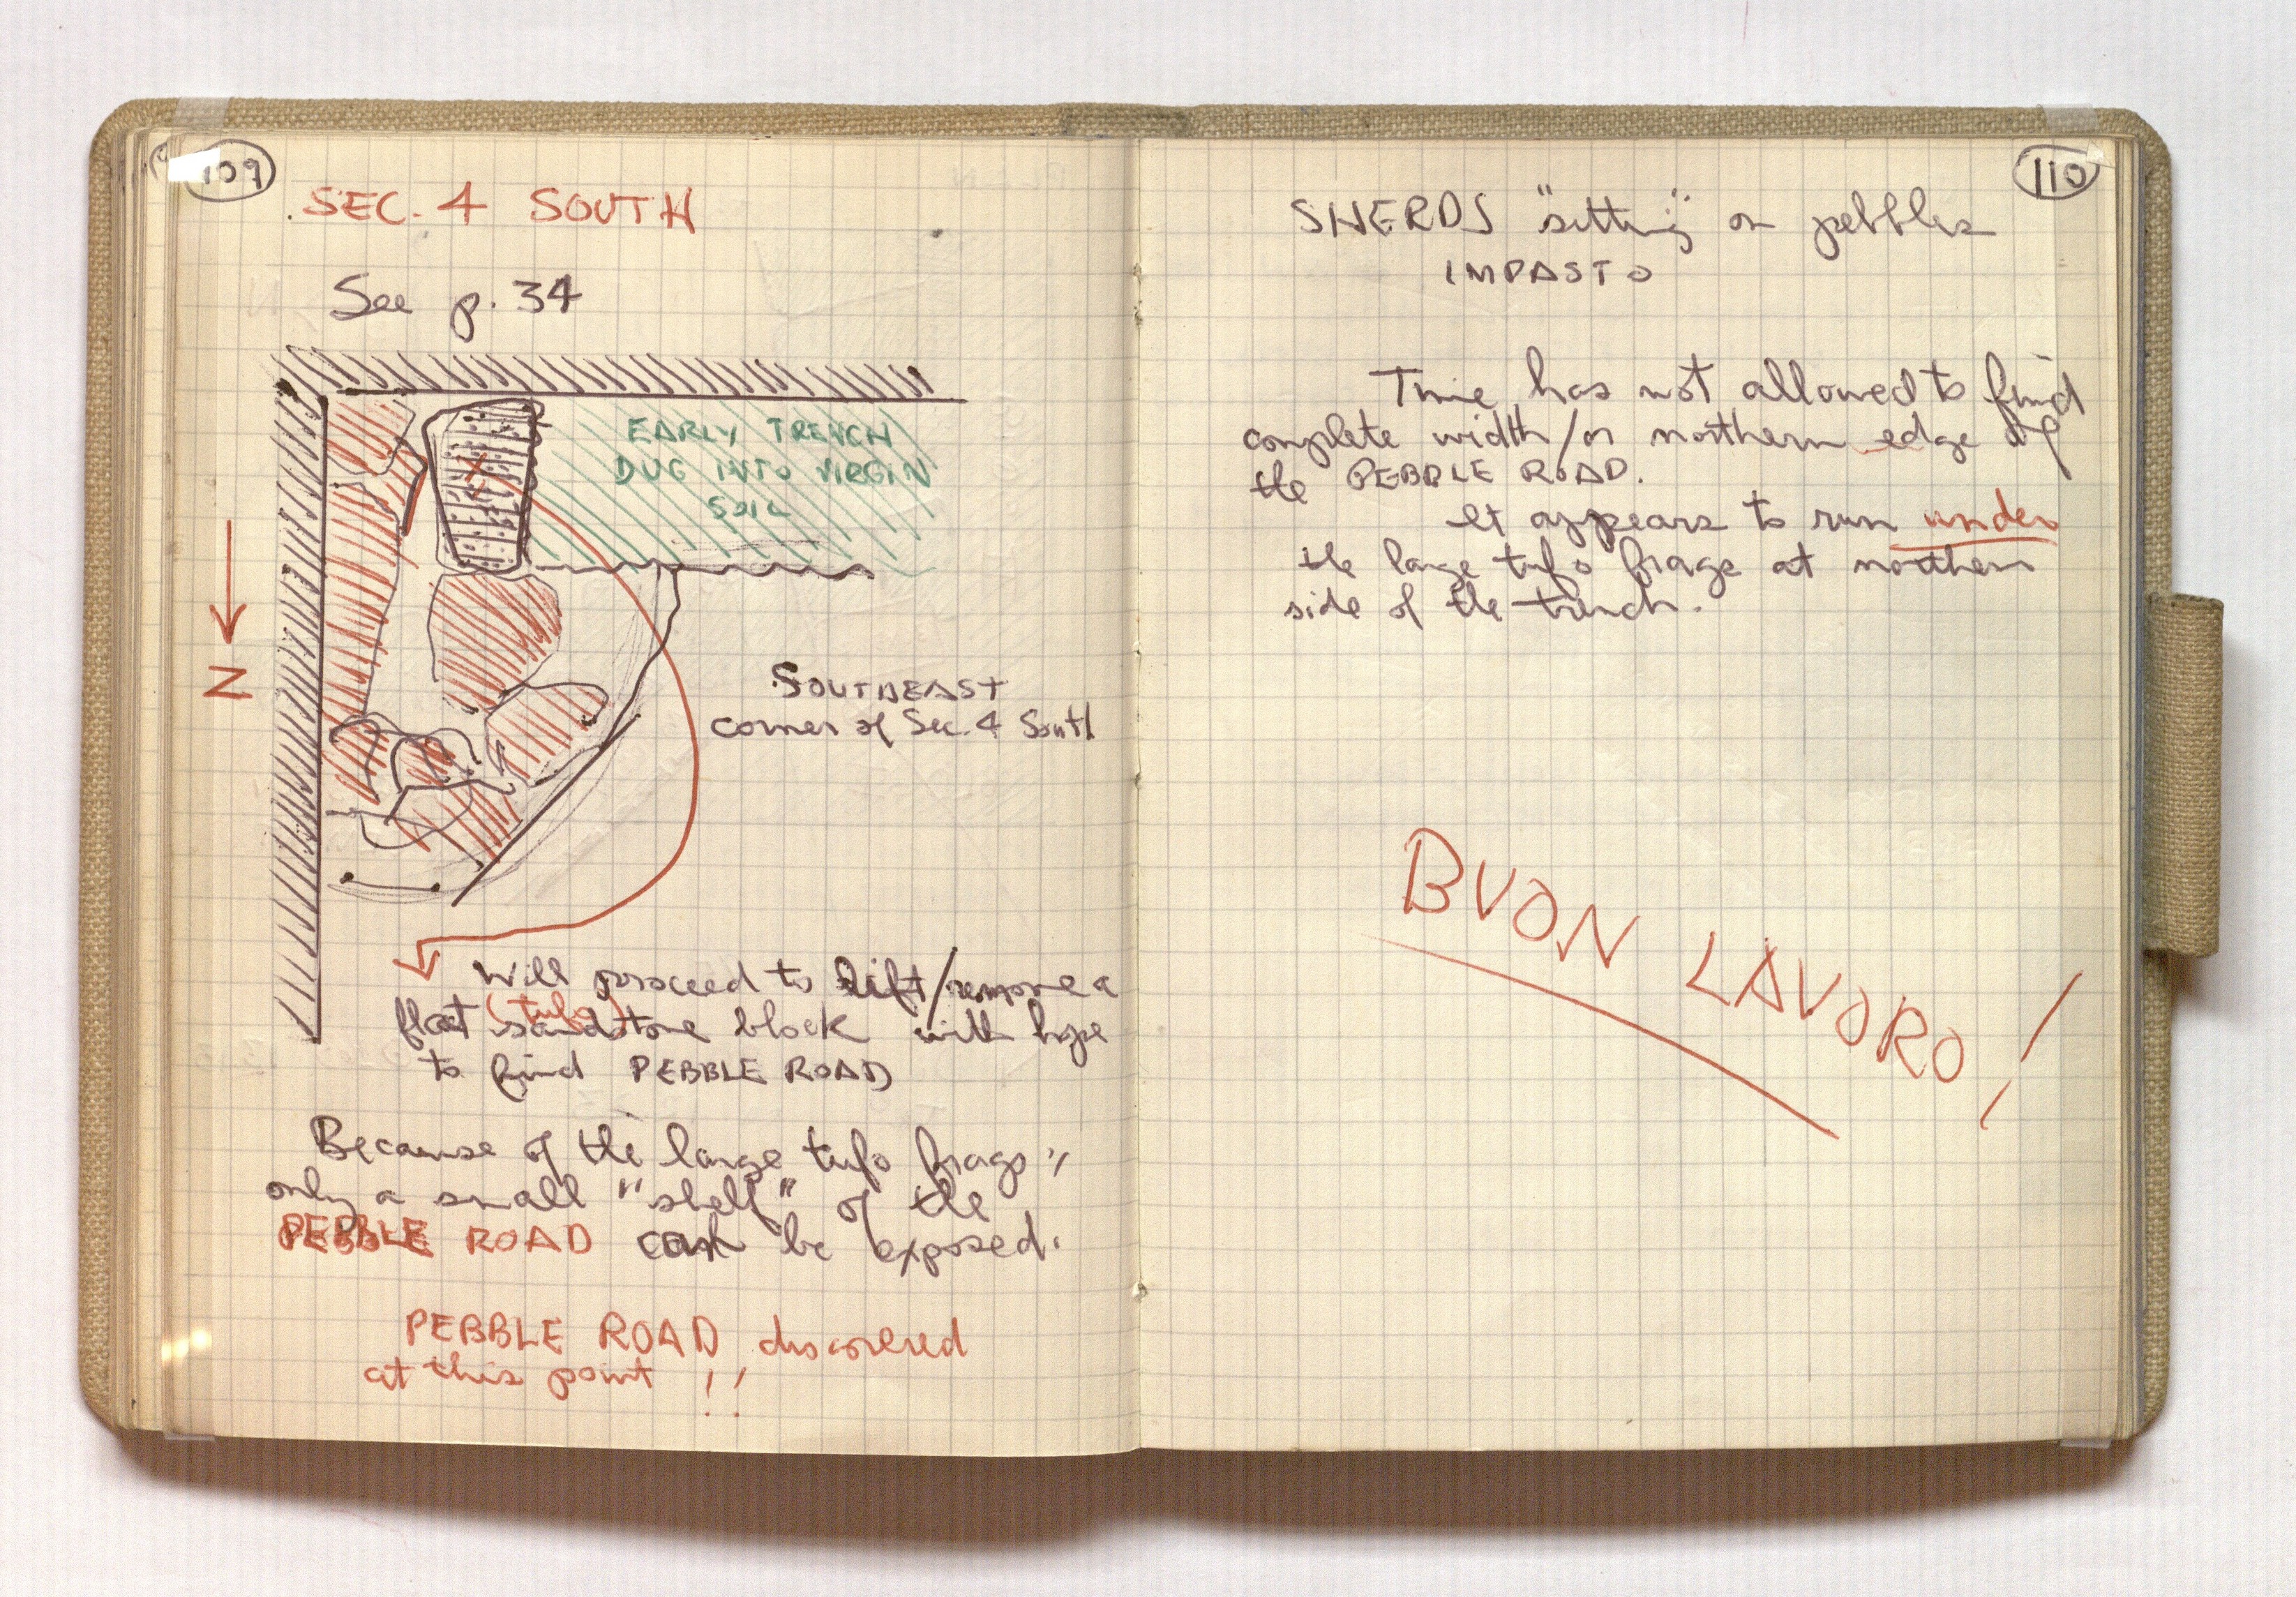 109
SEC. 4 SOUTH
See p. 34
EARLY TRENCH
DUG INTO VIRGIN
SOIL
N
SOUTHEAST
corner of Sec. 4 South
Will proceed to lift/remove a
flat (tufo) sandstone block with hope
to find PEBBLE ROAD
Because of the large tufo frags,
only a small "shelf" of the
PEBBLE ROAD can be exposed.
PEBBLE ROAD discovered
at this point !!
110
SHERDS "sitting" on pebbles
IMPASTO
Time has not allowed to find
complete width/or northern edge of
the PEBBLE ROAD.
It appears to run under
the large tufo frags at northern
side of the trench.
BUON LAVORO!